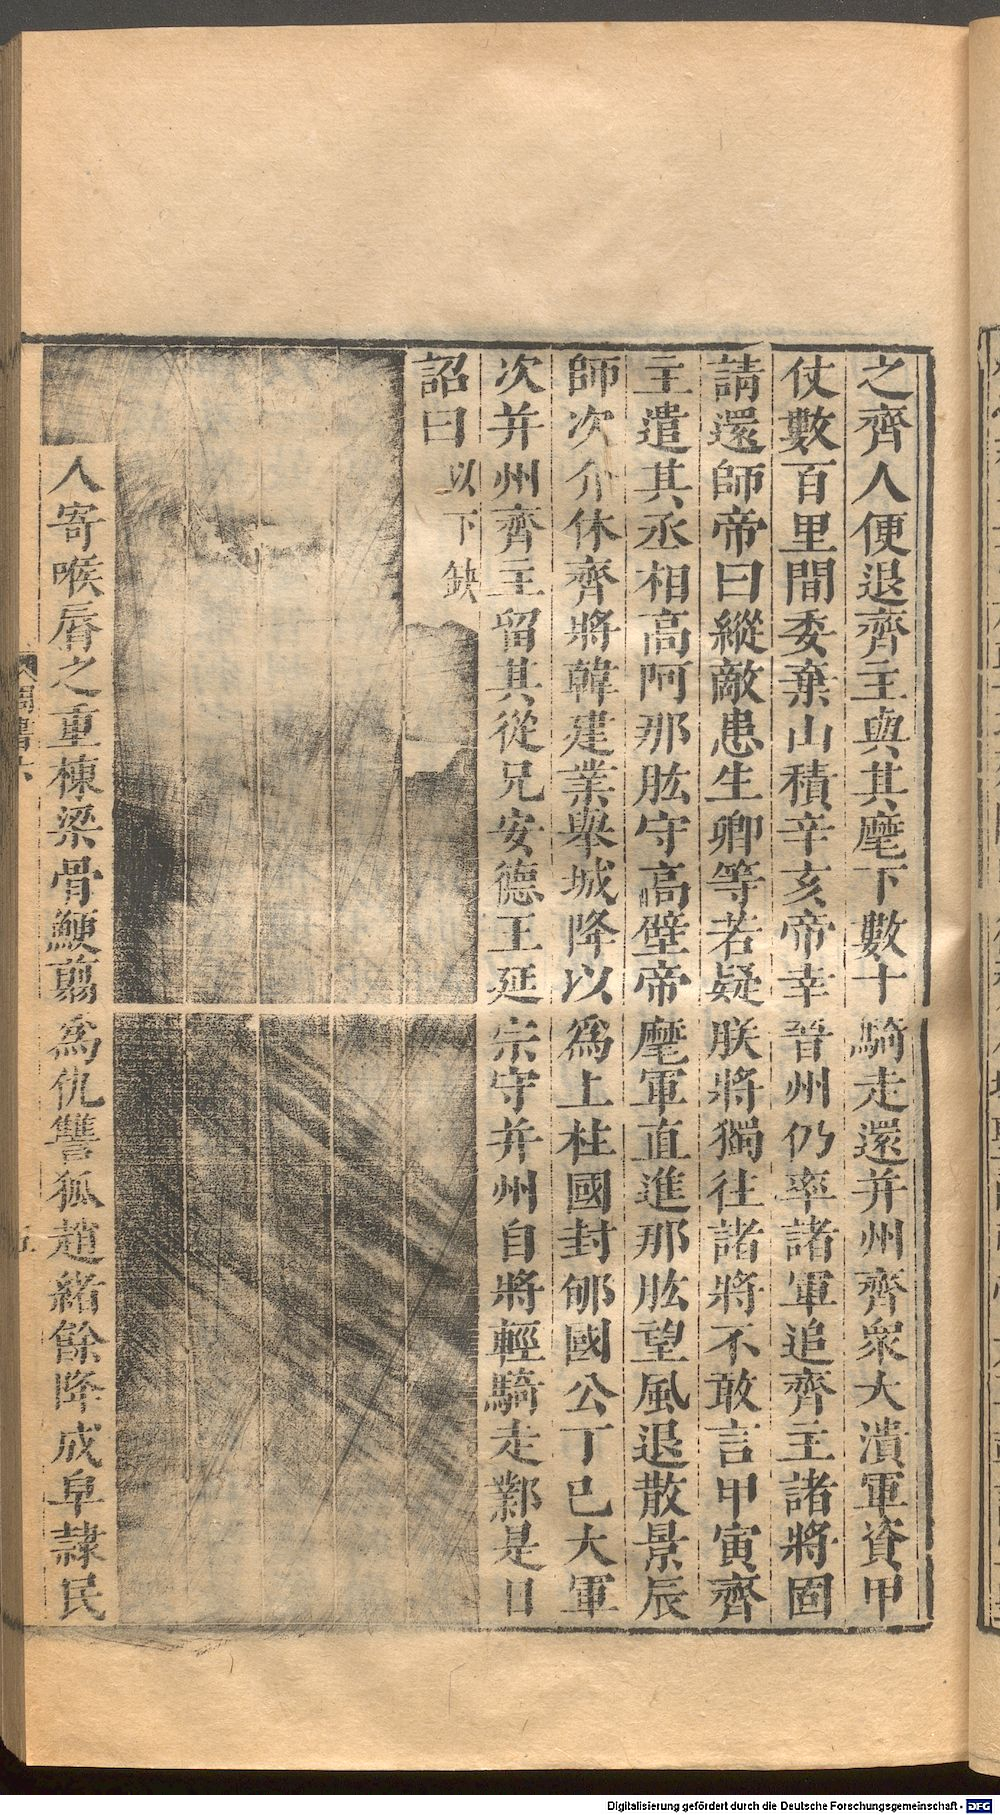 之齊人便退齊主與其麾下數十騎走還并州齊衆大潰軍資甲
仗數百里間委棄山積辛亥帝幸晉州仍率諸軍追齊主諸將固
請還師帝曰縱敵患生卿等若疑朕將獨往諸將不敢言甲寅齊
主遣其丞相高阿那肱守高壁帝麾軍直進那肱望風退散景辰
師次介休齊將韓建業舉城降以爲上柱國封郇國公丁巳大軍
次并州齊主留其從兄安德王延宗守并州自將輕騎走鄴是日
詔曰以下缺
人寄喉脣之重棟梁骨鯁翦爲仇讐狐趙緒餘降成阜隷民
周書六
五
Digitalisierung gefördert durch die Deutsche Forschungsgemeinschaft - DFG